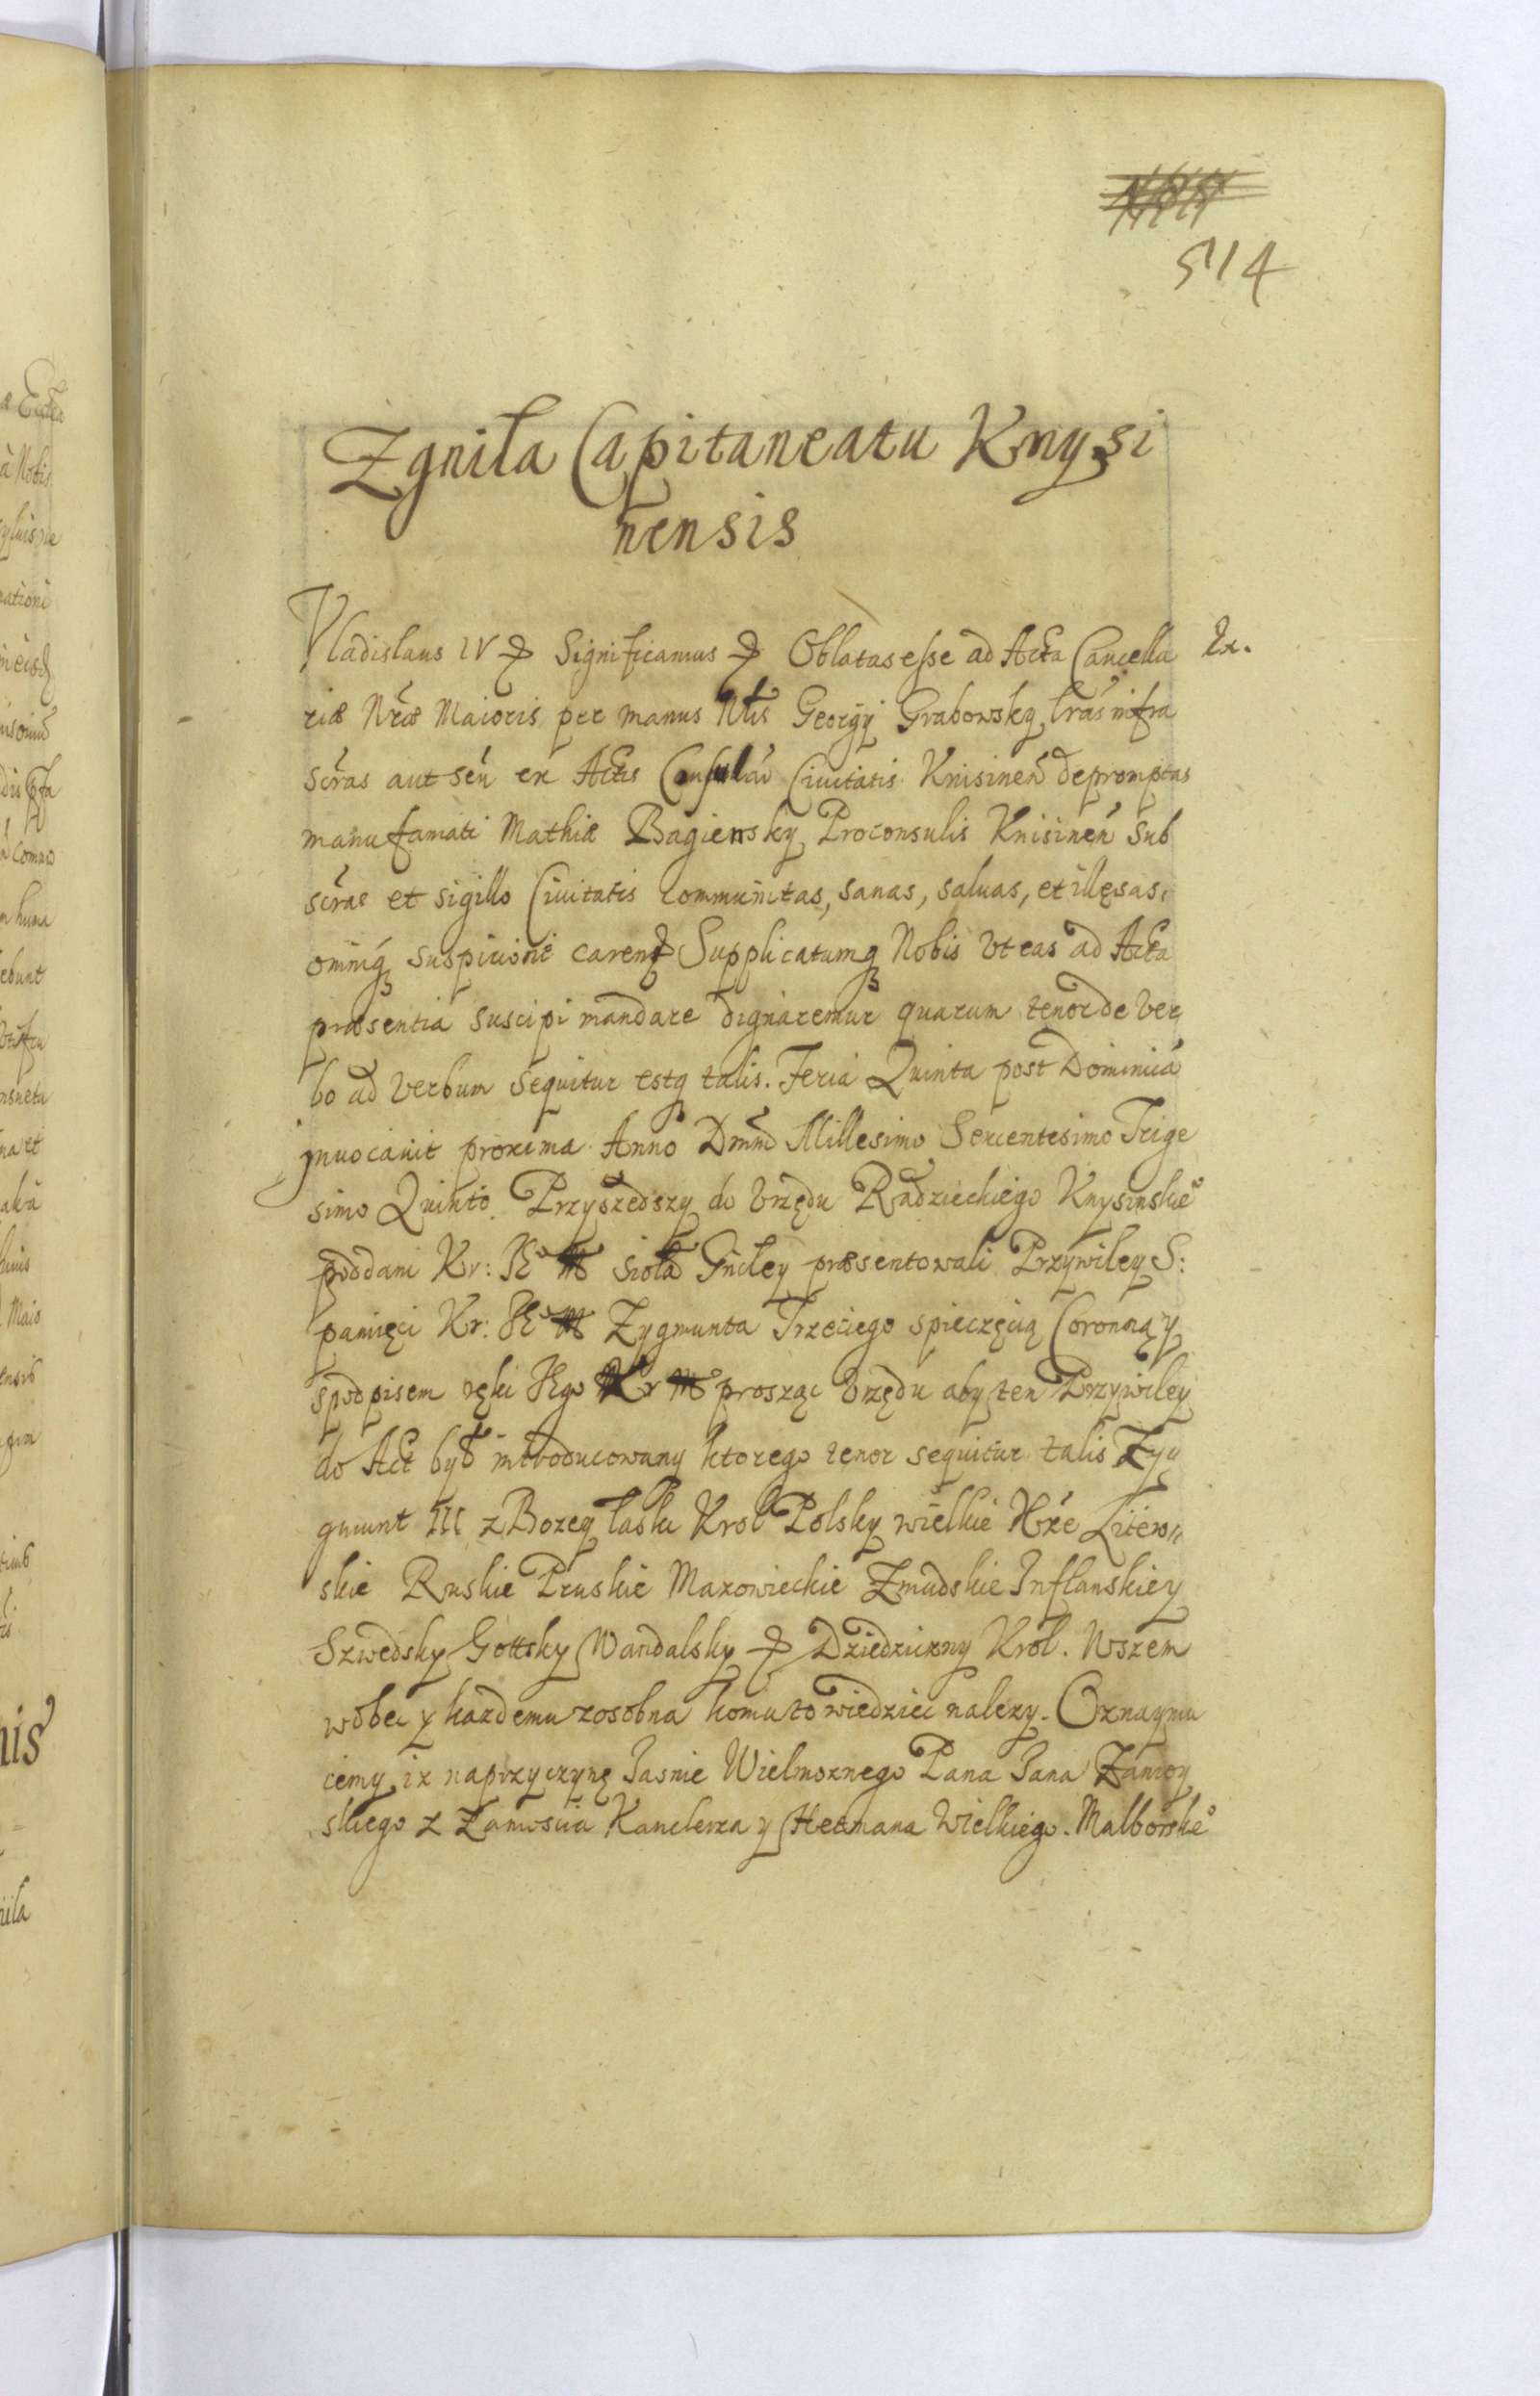 514
Zgniła Capitaneatu Knyszi
nensis
Vladislaus IV Significamus Oblatas esse ad Acta Cancella
riæ Nr̃æ Maioris per manus Nblis Georgÿ Grabowsky, lrãs infra
scr̃as aut seu ex Actis Consulãr Ciuitatis Knisineñ depromptas
manu famati Mathiæ Bagiensky Proconsulis Knisineñ Sub
scr̃as et sigillo Ciuitatis communitas, sanas, saluas, et illęsas,
omniq suspicione caren Supplicatumq Nobis Vt eas ad Acta
præsentia suscipi mandare dignaremur quarum tenor de ver
bo ad verbum sequitur estq talis. Feria Quinta post Dominicã
jnuocauit proxima Anno Dnĩ Millesimo Sexcentesimo Trige
simo Quinto. Przyszedszy do Vrzędu Radzieckiego Knysinskieo
poddani Kr: JEo M sioła Gniłey præsentowali Przywiley S:
pamięci Kr: JEo M Zygmunta Trzeciego spieczęcią Coronną y
spodpisem ręki JEgo Kr M prosząc Vrzędu aby ten Przywiley
do Act był introducowany ktorego tenor sequitur talis Zyg
gmunt III z Bozey łaski Krol Polsky wielkie Xże Litew
skie Ruskie Pruskie Mazowieckie Zmudskie Inflanskie y
Szwedsky Gottsky Wandalsky Dziedziczny Krol. Wszem
wobec y kazdemu zosobna komu to wiedziec nalezy. Oznaymu
iemy, iz naprzyczynę Jasnie Wielmoznego Pana Jana Zamoy
skiego z Zamoscia Kanclerza y Hetmana Wielkiego. Malborskieo